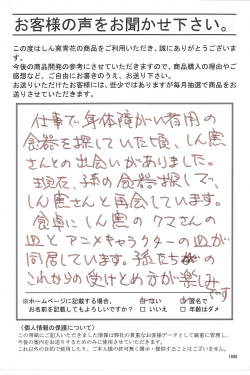 お客様の声をお聞かせ下さい。
この度はしん窯青花の商品をご利用いただき、誠にありがとうございます。
今後の商品開発の参考にさせていただきますので、商品購入の理由やご感想など、ご自由にお書きのうえ、お送り下さい。
お送りいただけたお客様には、些少ではありますが毎月抽選で商品をお送りさせていただきます。
仕事で、身体障がい者用の
食器を探していた頃、しん窯
さんとの出会いがありました。
現在、孫の食器探しで、
しん窯さんと再会しています。
食卓にしん窯のクマさんの
皿とアニメキャラクターの皿が
同居しています。孫たちが
これからの受けとめ方が楽しみ
です
※ホームページに記載する場合、
お名前を記載してもよろしいですか?
□はい □匿名で
□いいえ □年齢はダメ
〈個人情報の保護について〉
この用紙にご記入いただきました情報は弊社の貴重なお客様データとして厳重に管理し、
今後の案内をお送りするためのみに使用させていただきます。
これ以外の目的で使用したり、ご本人様の許可無く開示・提供することはございません。